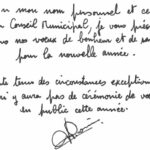 n mon nom personnel et ce
Conseil Municipal, je vous prés
nos vœux de bonheur et de pa
pour la nouvelle année.
te tenu des circonstances exception
i y aura pas de cérémonie de vœ
en public cette année.